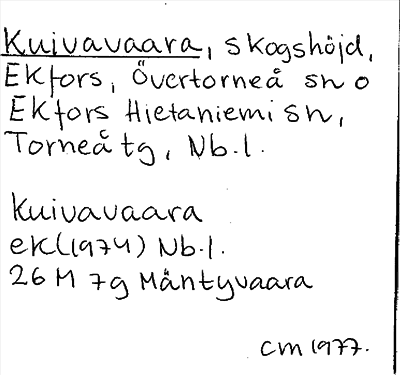 Kuivavaara, skogshöjd,
Ekfors, Övertorneå sn o
Ekfors Hietaniemi sn,
Torneå tg, Nb.l.
Kuivavaara
ek(1974) Nb.l.
26 M 7g Mäntyvaara
CM 1977.